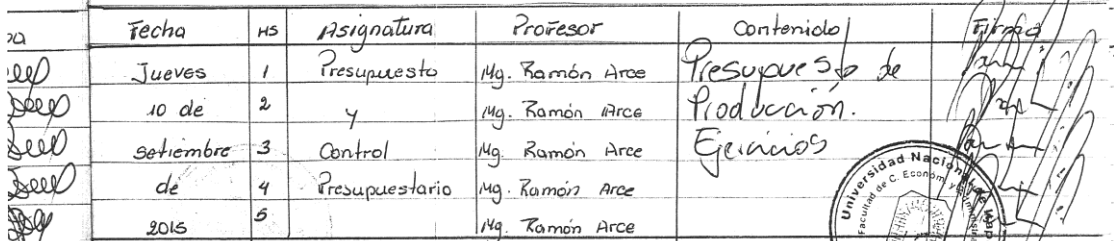 Fecha HS Asignatura Profesor Contenido Firma
Jueves 1 Presupuesto Mg. Ramón Arce Presupuesto de
10 de 2 y Mg. Ramón Arce Producción.
Setiembre 3 Control Mg. Ramón Arce Ejercicios
de 4 Presupuestario Mg. Ramón Arce
2015 5 Mg. Ramón Arce
Universidad Nacional de
Facultad de C. Económ. y